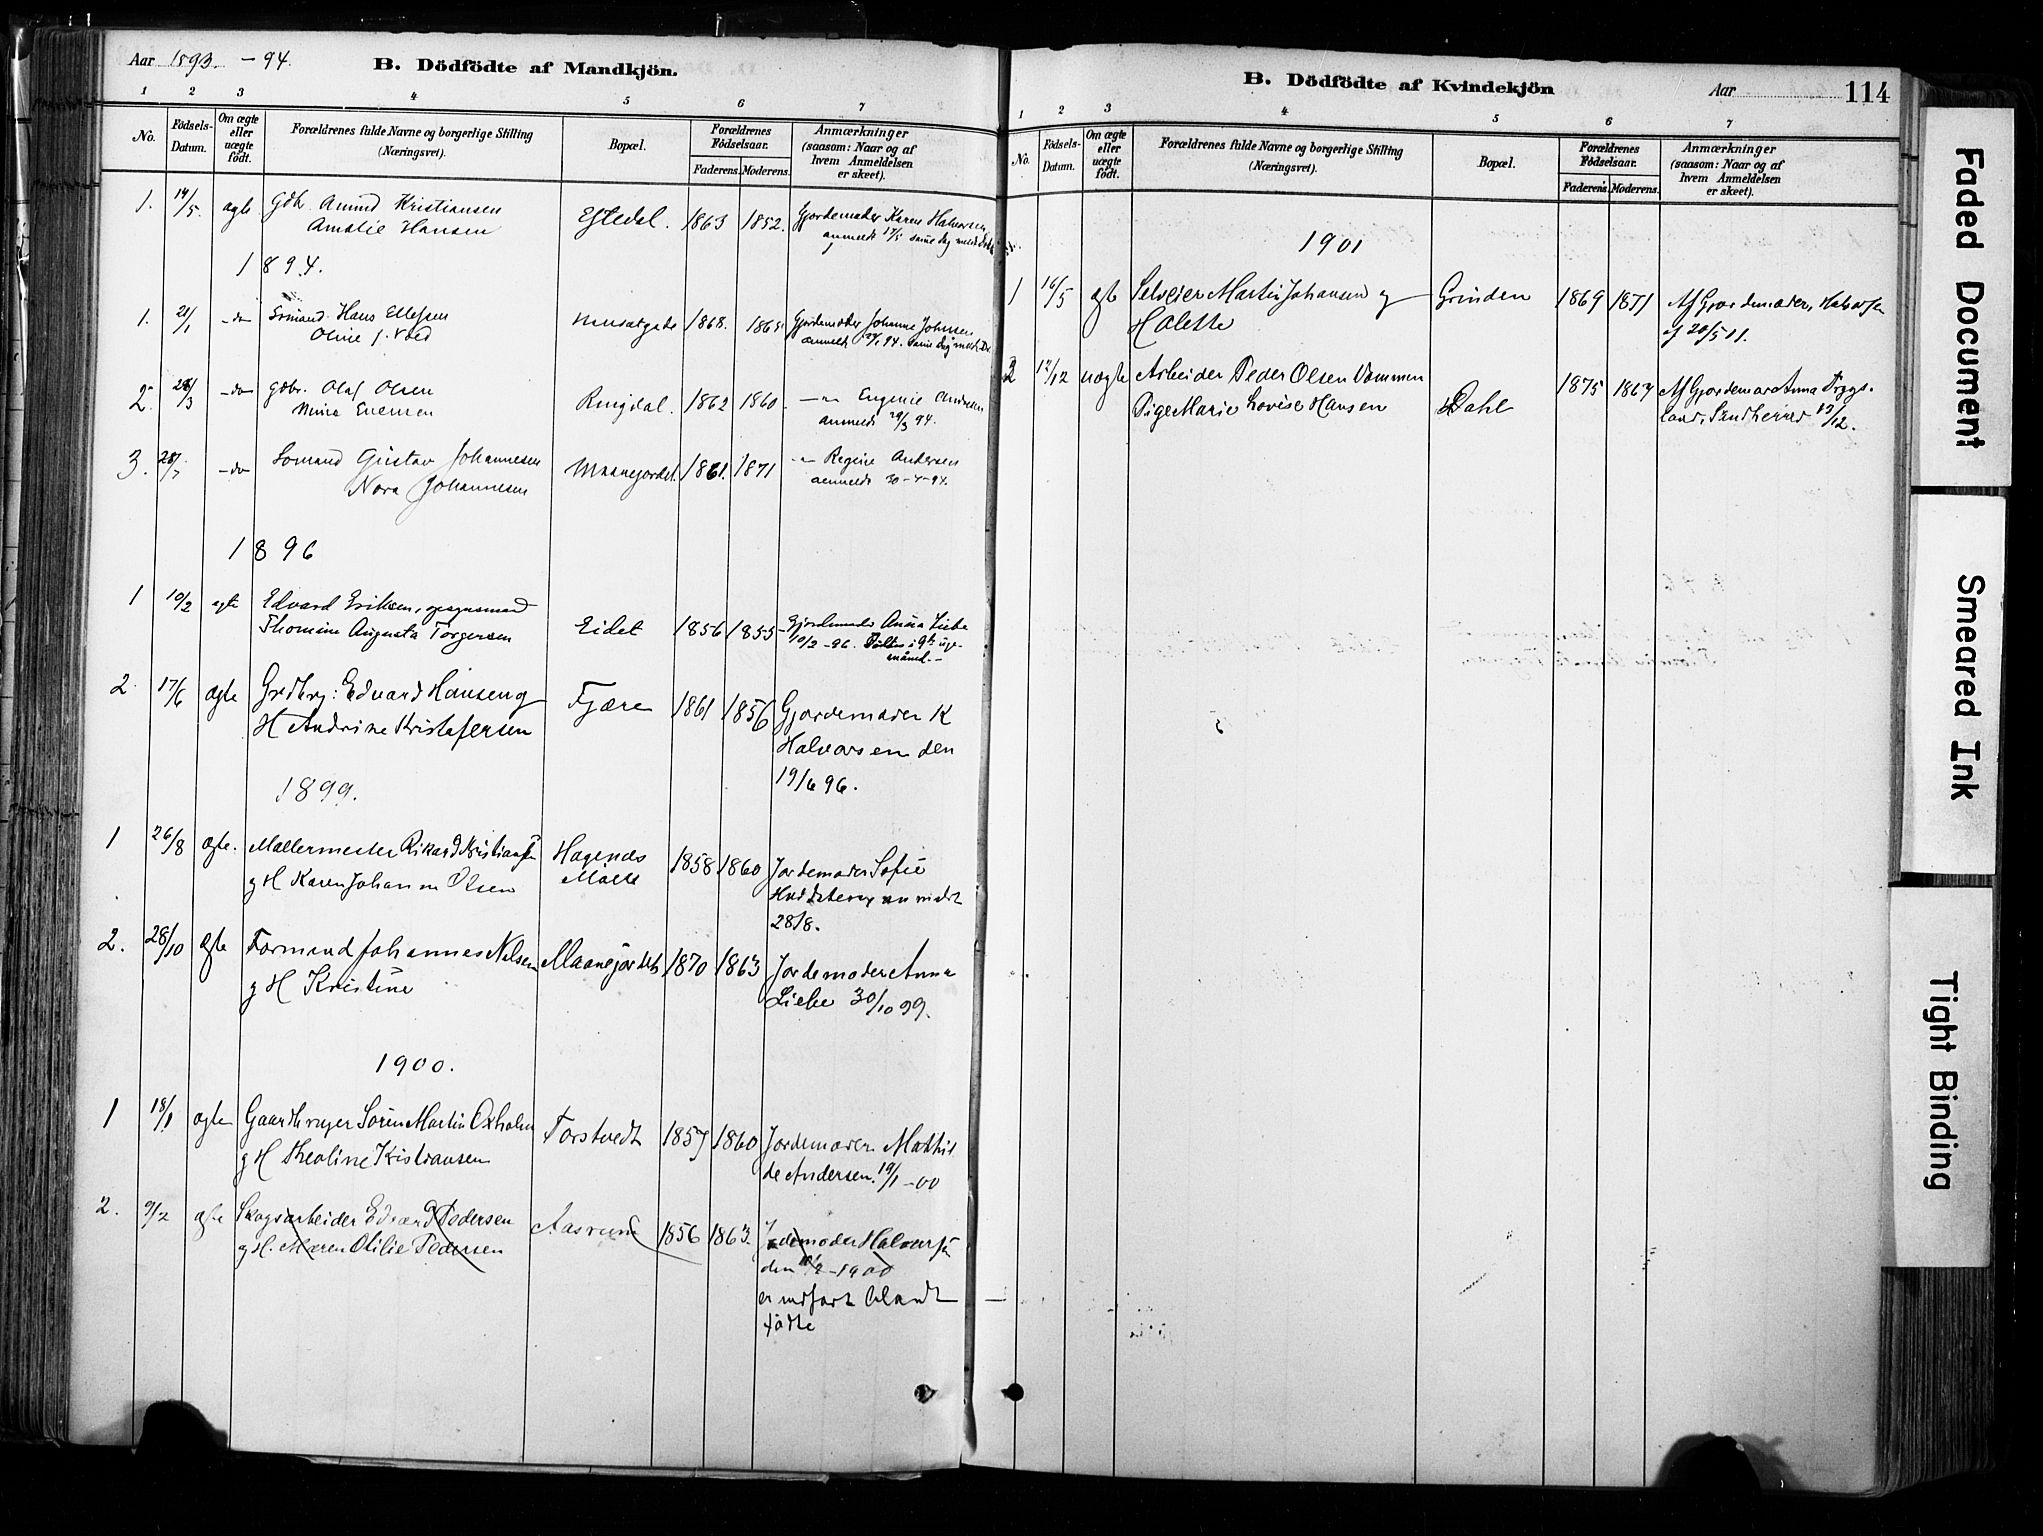 Aar 1893. - 94.
B. Dödfödte af Mandkjön.
1 2 3 4 5 6 7
No.
Födsels-Datum.
Om ægte eller uægte födt.
Forældrenes fulde Navne og borgerlige Stilling (Næringsvei).
Bopæl.
Forældrenes Födselsaar.
Faderens. Moderens.
Anmærkninger (saasom: Naar og af hvem Anmeldelsen er skeet).
1. 14/5. ægte Gdbr. Amund Kristiansen Eftedal. 1863 1852. Gjordemoder Karen Halvorsen
Amalie Hansen anmeldt 17/5 samme dag
1894.
1. 21/1 -do Sömand Hans Ellefsen 1868. Gjordemoder Johanne Johnsen
Oline J. anmeldt
2. -do gdbr. Olaf Olsen Ringdal. 1862 1860 -"- Eugenie Andersen
anmeldt 29/3 94.
3. 28/7 -do Sömand Gustav Johannesen Maanejordet. 1861. 1871 -"- Regine Andersen
Nora Johannesen anmeldt
1896
1 10/2 ægte Edvard Eriksen, Eidet 1856 1855 Gjordemoder Anna Liebe
Thomine Augusta Torgersen 10/2-96.
2. 17/6 ægte Grdbrg: Edvard Hansen og Fjære 1861 1856 Gjordemoder K
H Andrine Kristofersen Halvorsen den
19/6 96.
1899.
1 26/8 ægte. Møllermester Rikard Kristiansen Hagenæs 1858 1860 Jordemoder Sofie
g H Karen Johanne Olsen Mølle anmeldt
28/8.
2. 28/10 ægte Formand Johannes Nilsen Maanejordet 1870 1863 Jordemoder Anna
g H Kristine Liebe 30/10 99.
1900.
1 18/1 ægte Gaardbruger Sören Martin Oxholm Torstvedt 1857 1860 Jordemoder Mathil
g H Theoline Kristiansen de Andersen. 19/1-00
2. 9/2 ægte Skogsarbeider Edvard Pedersen Aasrum 1856 1863. Jordemoder Halvorsen
g H. Maren Otilie Pedersen den 10/2-1900
er indført blandt
födte
B. Dödfödte af Kvindekjön
Aar 114
1 2 3 4 5 6 7
No.
Födsels-Datum.
Om ægte eller uægte födt.
Forældrenes fulde Navne og borgerlige Stilling (Næringsvei).
Bopæl.
Forældrenes Födselsaar.
Faderens. Moderens.
Anmærkninger (saasom: Naar og af hvem Anmeldelsen er skeet).
1901
1 16/5 ægte Selveier Martin Johansen og Grinden 1869 1871 Af Gjordemoder, Halvorsen
Halette 20/5 01.
2 12/12 uægte Arbeider Peder Olsen Vammen 1875 1867 Af Gjordemor Anna
Pige Marie Lovise Hansen Dahl 13/12.
Faded Document
Smeared Ink
Tight Binding